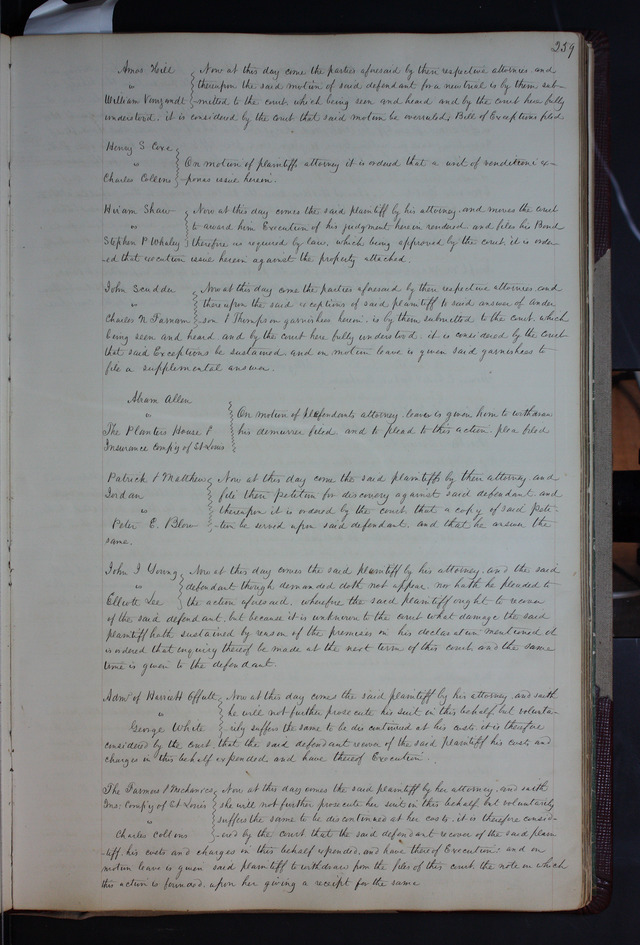 259
Amos Hill } Now at this day come the parties aforesaid by their respective attornies, and
vs } thereupon the said motion of said defendant for a new trial is by them sub-
William Vanzandt } -mitted to the court, which being seen and heard and by the court here fully
understood, it is considered by the court that said motion be overruled, Bill of Exceptions filed
Henry S Coxe }
vs } On motion of plaintiffs attorney it is ordered that a writ of venditioni ex-
Charles Collins } -ponas issue herein.
Hiram Shaw } Now at this day comes the said plaintiff by his attorney, and moves the court
vs } to award him Execution of his judgment herein rendered and files his Bond
Stephen P Whaley } therefore as required by law, which being approved by the court, it is orde-
-ed that execution issue herein against the property attached.
John Scudder } Now at this day come the parties aforesaid by their respective attornies, and
vs } thereupon the said exceptions of said plaintiff to said answer of Ander
Charles N Farnam } -son & Thompson garnishees herein, is by them submitted to the court, which
being seen and heard and by the court here fully understood, it is considered by the court
that said Exceptions be sustained, and on motion leave is given said garnishees to
file a supplemental answer.
Abram Allen
vs } On motion of defendants attorney, leave is given him to withdraw
The Planters House & } his demurrer filed, and to plead to this action, plea filed
Insurance Comp'y of St Louis
Patrick & Matthew } Now at this day come the said plaintiffs by their attorney and
Jordan } file their petition for discovery against said defendant and
vs } thereupon it is ordered by the court, that a copy of said peti-
Peter E. Blow } -tion be served upon said defendant, and that he answer the
same.
John I Young } Now at this day comes the said plaintiff by his attorney, and the said
vs } defendant though demanded doth not appear, nor hath he pleaded to
Elliott Lee } the action aforesaid, wherefore the said plaintiff ought to recover
of the said defendant, but because it is unknown to the court what damage the said
plaintiff hath sustained by reason of the premises in his declaration mentioned it
is ordered that enquiry thereof be made at the next term of this court, and the same
time is given to the defendant.
Adm'r of Harriett Offutt } Now at this day comes the said plaintiff by his attorney, and saith
vs } he will not further prosecute his suit in this behalf, but volunta-
George White } -rily suffers the same to be discontinued at his costs, it is therefore
considered by the court, that the said defendant recover of the said plaintiff his costs and
charges in this behalf expended, and have thereof Execution.
The Farmers & Mechanics } Now at this day comes the said plaintiff by her attorney, and saith
Ins: Comp'y of St Louis } she will not further prosecute her suit in this behalf but voluntarily
vs } suffers the same to be discontinued at her costs, it is therefore consid-
Charles Collins } -ered by the court that the said defendant recover of the said plain
-tiff, his costs and charges in this behalf expended, and have thereof Execution: and on
motion leave is given said plaintiff to withdraw from the files of this court, the note on which
this action is founded, upon her giving a receipt for the same